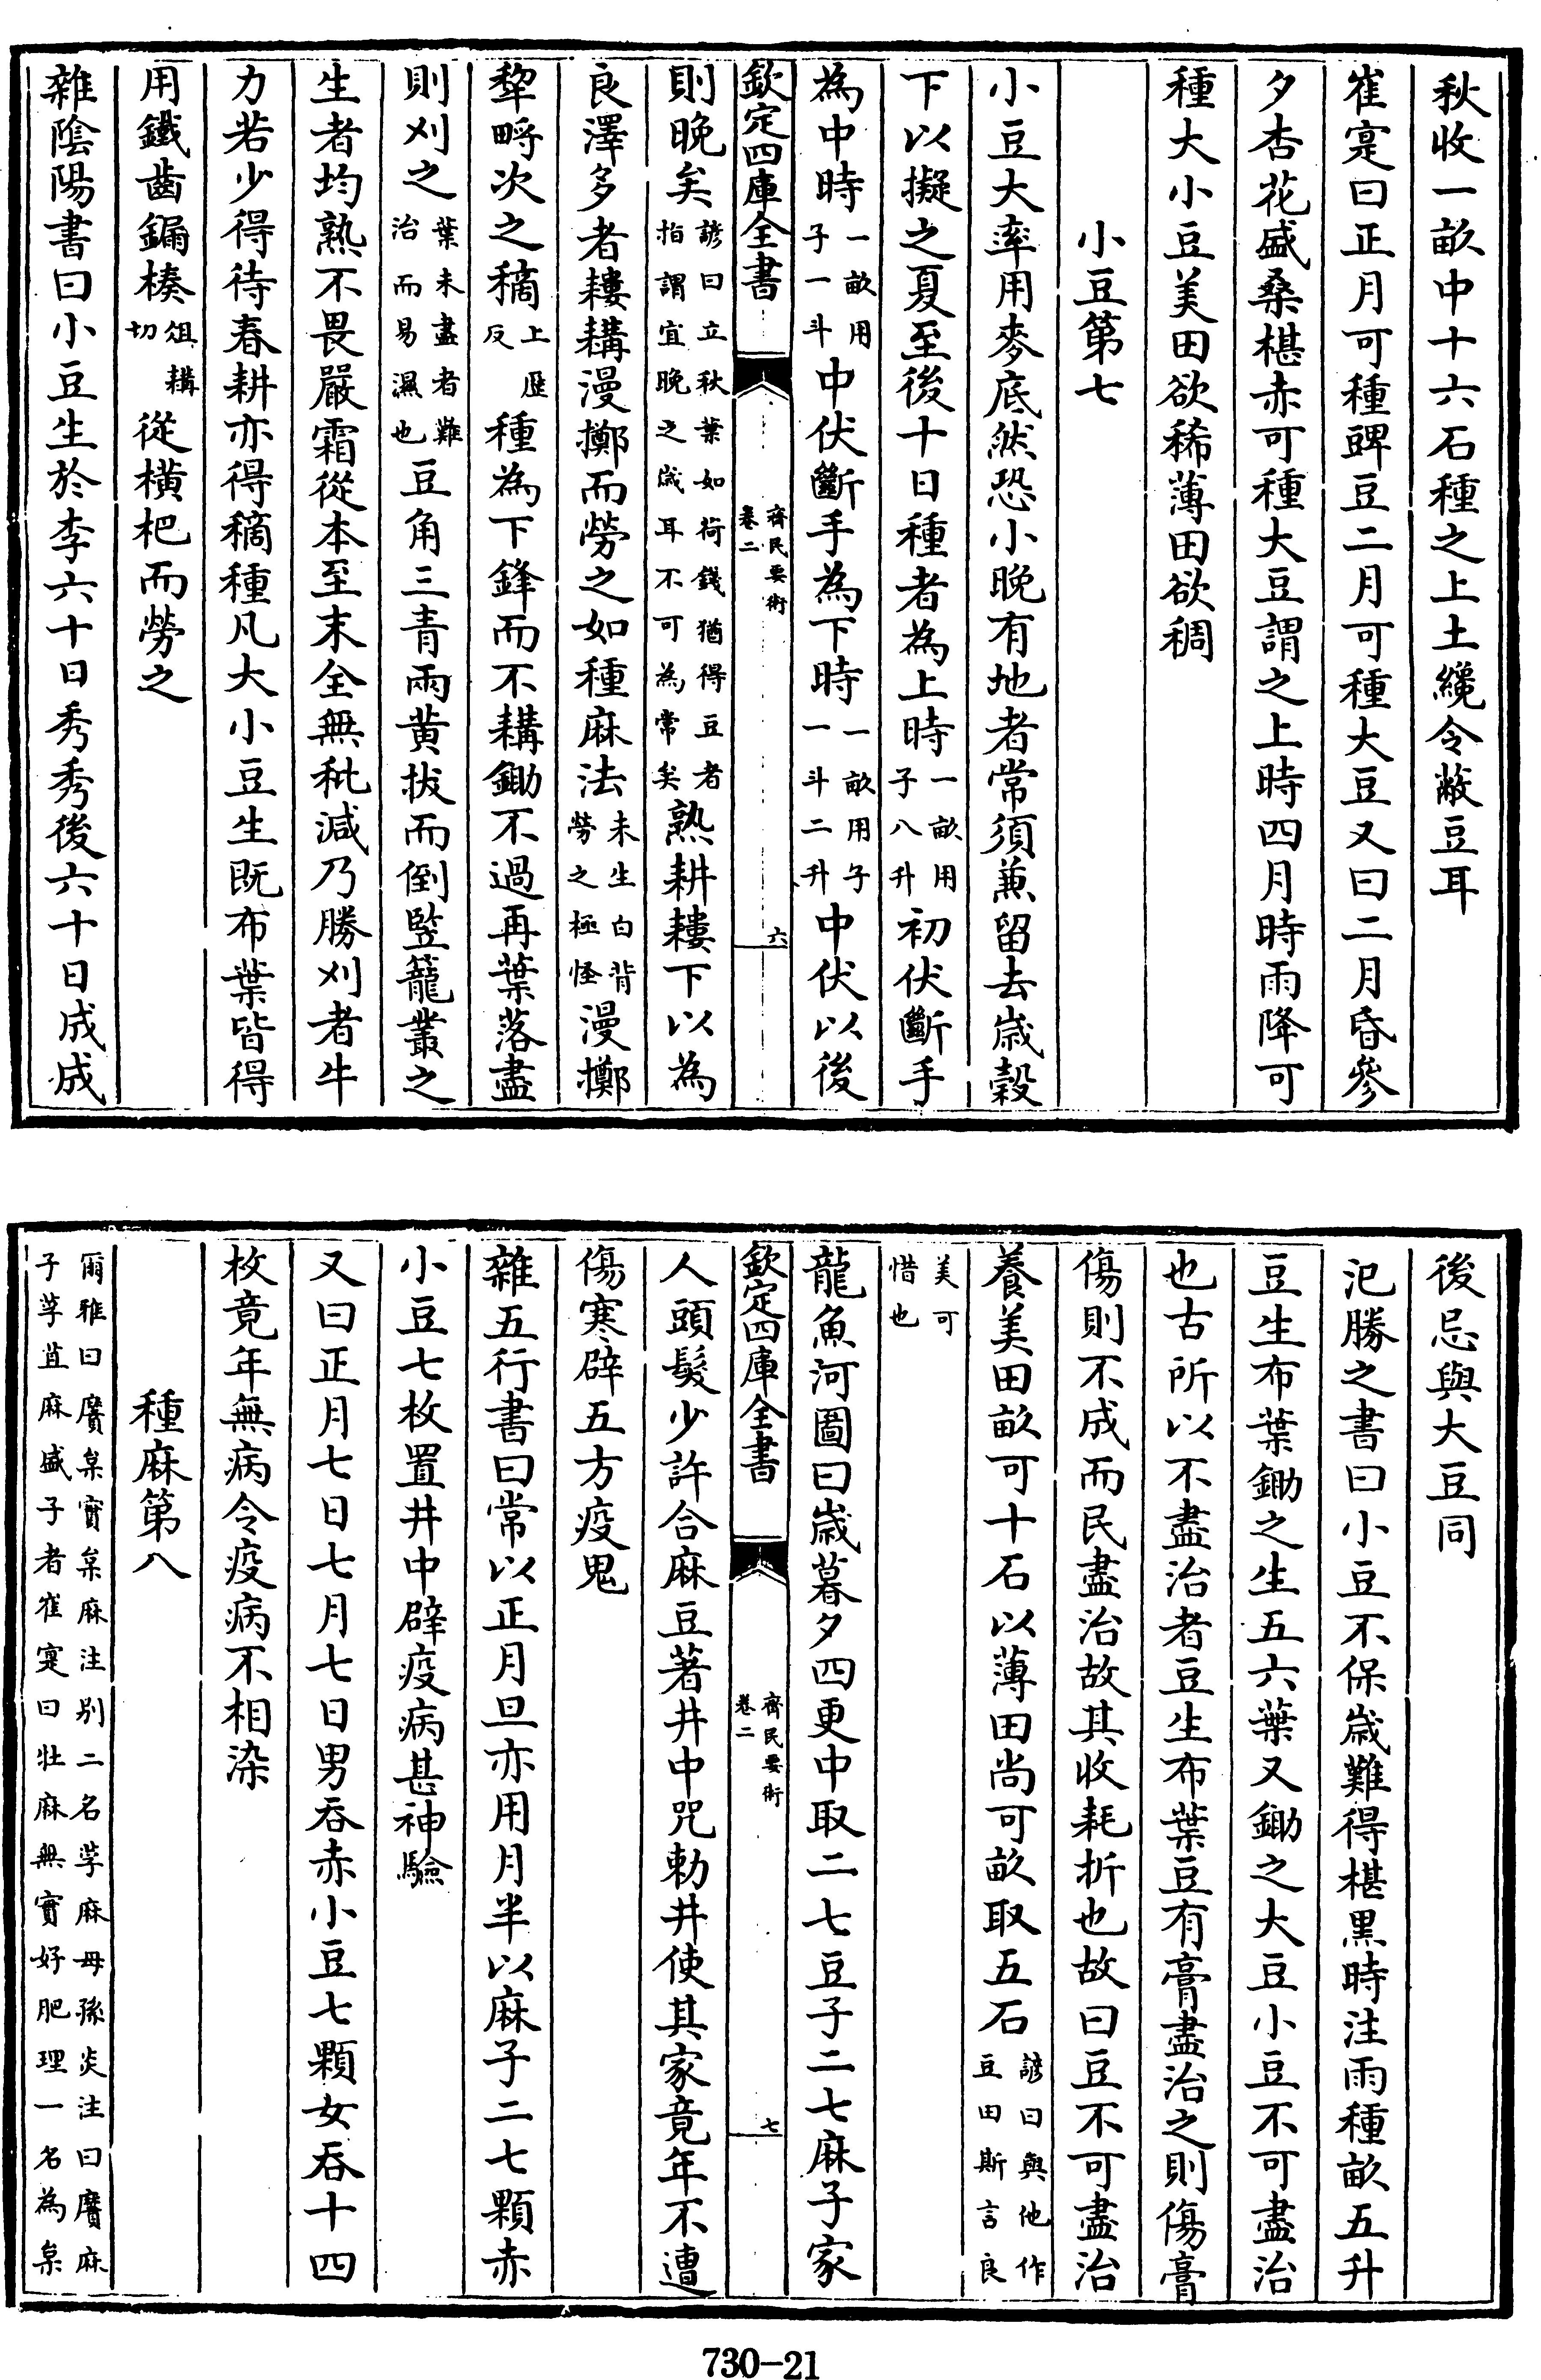 秋收一畝中十六石種之上土纔令蔽豆耳
崔寔曰正月可種䜺豆二月可種大豆又曰二月昏參
夕杏花盛桑椹赤可種大豆謂之上時四月時雨降可
種大小豆美田欲稀薄田欲稠
小豆第七
小豆大率用麥底然恐小晚有地者常須兼留去歲穀
下以擬之夏至後十日種者為上時一畝用子八升初伏斷手
為中時一畝用子一斗中伏斷手為下時一畝用子一斗二升中伏以後
欽定四庫全書 齊民要術 卷二 六
則晚矣諺曰立秋葉如荷錢猶得豆者指謂宜晚之歲耳不可為常矣熟耕耬下以為
良澤多者耬耩漫擲而勞之如種麻法未生白背勞之極怪漫擲
犂㽟次之稿上歷反種為下鋒而不耩鋤不過再葉落盡
則刈之葉未盡者難治而易濕也豆角三青兩黄拔而倒竪籠叢之
生者均熟不畏嚴霜從本至末全無秕減乃勝刈者牛
力若少得待春耕亦得稿種凡大小豆生既布葉皆得
用鐵齒鍽楱俎耩切從橫杷而勞之
雜陰陽書曰小豆生於李六十日秀秀後六十日成成
後忌與大豆同
氾勝之書曰小豆不保歲難得椹黒時注雨種畝五升
豆生布葉鋤之生五六葉又鋤之大豆小豆不可盡治
也古所以不盡治者豆生布葉豆有膏盡治之則傷膏
傷則不成而民盡治故其收耗折也故曰豆不可盡治
養美田畝可十石以薄田尚可畝取五石諺曰與他作豆田斯言良
美可惜也
龍魚河圖曰歲暮夕四更中取二七豆子二七麻子家
欽定四庫全書 齊民要術 卷二 七
人頭髮少許合麻豆著井中咒勅井使其家竟年不遭
傷寒辟五方疫鬼
雜五行書曰常以正月旦亦用月半以麻子二七顆赤
小豆七枚置井中辟疫病甚神驗
又曰正月七日七月七日男吞赤小豆七顆女吞十四
枚竟年無病令疫病不相染
種麻第八
爾雅曰黂枲實枲麻注别二名茡麻母孫炎注曰黂麻
子茡苴麻盛子者崔寔曰牡麻無實好肥理一名為枲
730-21